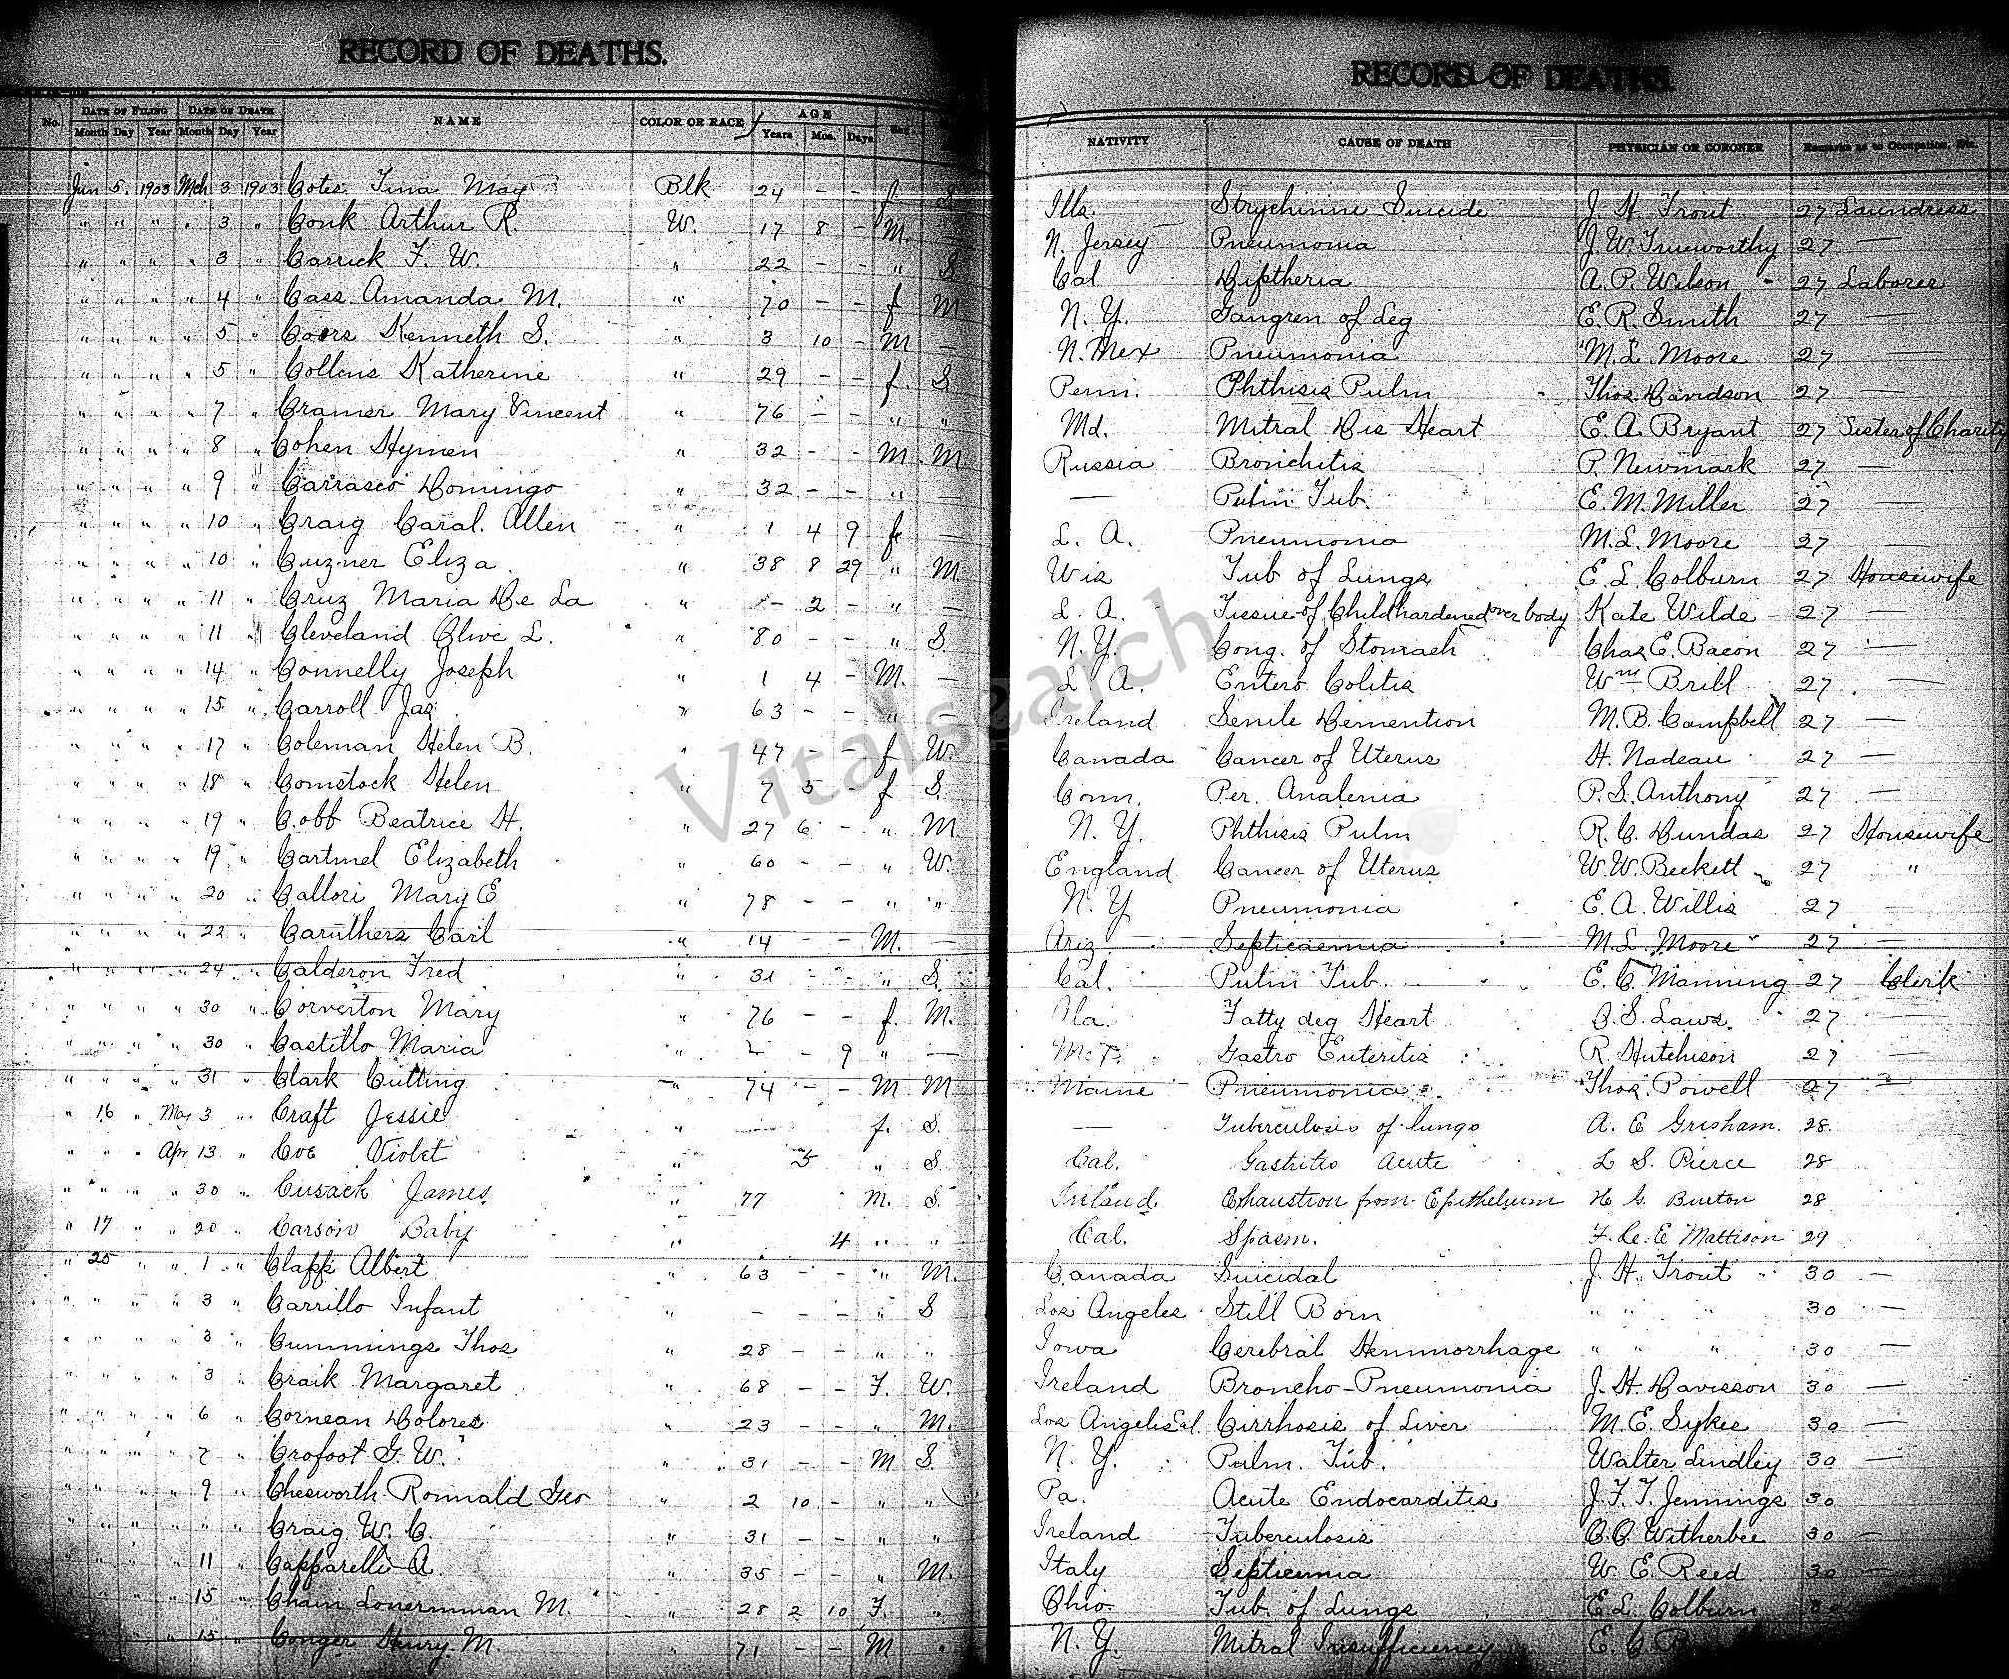 RECORD OF DEATHS.
RECORD OF DEATHS.
No. DATE OF FILING DATE OF DEATH NAME COLOR OR RACE AGE Sex
Month Day Year Month Day Year Years Mos. Days
NATIVITY CAUSE OF DEATH PHYSICIAN OR CORONER Remarks as to Occupation, Etc.
Jun 5. 1903 Mch 3 1903 Cotes Tina May Blk 24 - - f. S Ills. Strychinne Suicide J. H. Trout 27 Laundress
" " " " 3 " Conk Arthur R. W. 17 8 - M. - N. Jersey Pneumonia J. W. Trueworthy 27 -
" " " " 3 " Carrick F. W. " 22 - - " S Cal Diptheria A. P. Wilson - 27 Laborer
" " " " 4 " Cass Amanda M. " 70 - - f M N. Y. Gangren of Leg E. R. Smith 27 -
" " " " 5 " Coors Kenneth S. " 3 10 - M - N. Mex Pneumonia M. L. Moore 27 -
" " " " 5 " Collens Katherine " 29 - - f. S Penn. Phthisis Pulm Thos. Davidson 27 -
" " " " 7 " Cramer Mary Vincent " 76 - - " " Md. Mitral Dis Heart E. A. Bryant 27 Sister of Charity
" " " " 8 " Cohen Hymen " 32 - - M M Russia Bronchitis P. Newmark 27 -
" " " " 9 " Carrasco Domingo " 32 - - " - - Pulm Tub. E. M. Miller 27 -
" " " " 10 " Craig Caral. Allen " 1 4 9 f. - L. A. Pneumonia M. L. Moore 27 -
" " " " 10 " Cuzner Eliza " 38 8 29 " M Wis Tub of Lungs E. L. Colburn 27 Housewife
" " " " 11 " Cruz Maria De La " - 2 - " - L. A. Tissue of Child hardened over body Kate Wilde 27 -
" " " " 11 " Cleveland Olive L. " 80 - - " S N. Y. Cong. of Stomach Chas E. Bacon 27 -
" " " " 14 " Connelly Joseph " 1 4 - M. - L. A. Entero Colitis Wm Brill 27 -
" " " " 15 " Carroll Jas " 63 - - " - Ireland Senile Demention M. B. Campbell 27 -
" " " " 17 " Coleman Helen B. " 47 - - f W. Canada Cancer of Uterus H. Nadeau 27 -
" " " " 18 " Comstock Helen " 7 5 - f S. Conn. Per. Analenia P. S. Anthony 27 -
" " " " 19 " Cobb Beatrice H. " 27 6 - " M N. Y. Phthisis Pulm R. C. Dundas 27 Housewife
" " " " 19 " Cartmel Elizabeth " 60 - - " W. England Cancer of Uterus W. W. Beckett 27 "
" " " " 20 " Callori Mary E " 78 - - " " N. Y. Pneumonia E. A. Willis 27 -
" " " " 22 " Caruthers Carl " 14 - - M. - Ariz Septicaemia M. L. Moore 27 -
" " " " 24 " Calderon Fred " 31 - - " S. Cal. Pulm Tub. E. C. Manning 27 Clerk
" " " " 30 " Corverton Mary " 76 - - f. M. Fatty deg Heart Laws. 27 -
" " " " 30 " Castillo Maria " - - 9 " - Gastro Enteritis R. Hutchison 27 -
" " " " 31 " Clark Cutting " 74 - - M M Maine Pneumonia Thos. Powell 27 -
" 16 " May 3 " Craft Jessie " - f. S. - Tuberculosis of lungs A. E Grisham. 28.
" " " Apr 13 " Coe Violet " 5 " S Cal. Gastritis Acute L S. Pierce 28
" " " " 30 " Cusack James " 77 M. S. Ireland Exhaustion from Epithelium H G. Burton 28
" 17 " " 20 " Carson Baby " 4 " " Cal. Spasm. F. De. E Mattison 29
" 25 " " 1 " Clapp Albert " 63 - - " M. Canada Suicidal J. H. Trout 30 -
" " " " 3 " Carrillo Infant " - - - " S Los Angeles Still Born " " " 30 -
" " " " 3 " Cummings Thos " 28 - - " " Iowa Cerebral Hemmorrhage " " " 30 -
" " " " 3 " Craik Margaret " 68 - - F. W. Ireland Broncho-Pneumonia J. H. Davisson 30 -
" " " " 6 " Cornean Dolores " 23 - - " M. Los Angeles Cal. Cirrhosis of Liver M. E. Sykes 30 -
" " " " 7 " Crofoot G. W. " 31 - - M S. N. Y. Pulm. Tub. Walter Lindley 30 -
" " " " 9 " Chesworth Ronnald Geo " 2 10 - " " Pa. Acute Endocarditis J. F. T. Jennings 30
" " " " " " Craig W. C. " 31 - - " " Ireland Tuberculosis C. C. Witherbee 30 -
" " " " 11 " Capparelli A. " 35 - - " M. Italy Septicemia W. E. Reed 30 -
" " " " 15 " Chain Lonernman M. " 28 2 10 F. " Ohio Tub. of Lungs E. L. Colburn 30
" " " " 15 " Conger Henry M. " 71 - - M " N. Y. Mitral Insufficiency E. C.
Vitalsearch